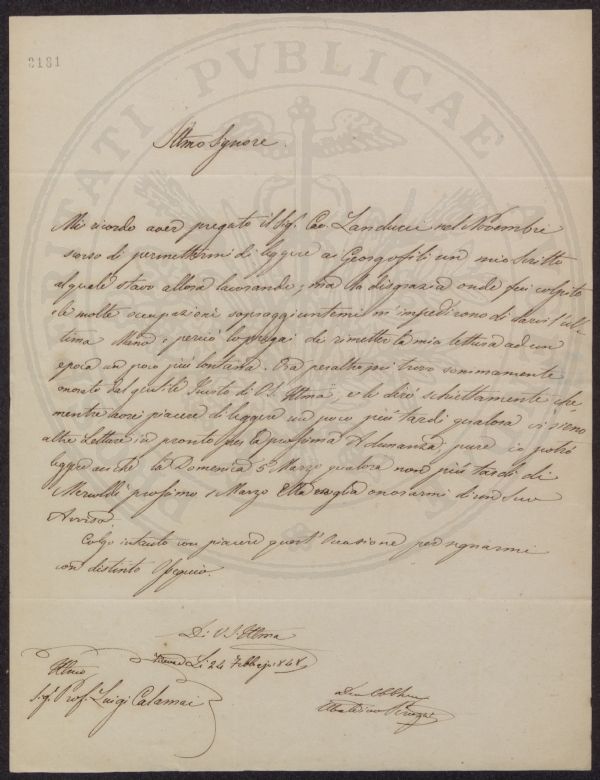 3181
PROSPERITATI PVBLICAE
Illmo Signore.
Mi ricordo aver pregato il Sig. Cav. Landucci nel Novembre
scorso di permettermi di leggere ai Georgofili un mio Scritto
al quale stavo allora lavorando; ma la disgrazia onde fui colpito
e le molte occupazioni sopraggiuntemi mi impedirono di darvi l'ul-
tima Mano, e perciò lo pregai di rimettere la mia lettura ad un
epoca un poco più lontana. Ora peraltro mi trovo sommamente
onorato dal gentile Invito di V.S. Illma, e le dirò schiettamente che
mentre avrei piacere di leggere un poco più tardi qualora vi sieno
altre Letture in pronto per la prossima Adunanza, pure io potrò
leggere anche la Domenica 5 Marzo qualora non più tardi di
Mercoldì prossimo 1 Marzo Ella voglia onorarmi di un Suo
Avviso.
Colgo intanto con piacere quest'Occasione per segnarmi
con distinto Ossequio.
Di V.S. Illma
Li 24 Febbrajo 1848
Illmo
Sig. Prof. Luigi Calamai